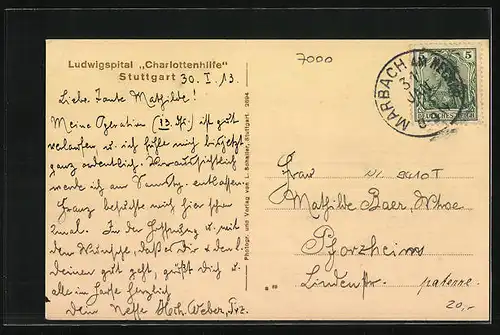 Ludwigspital „Charlottenhilfe"
Stuttgart 30. I. 13.
Liebe Tante Mathilde!
Meine Operation ist gut
verlaufen u. ich fühle mich bis jetzt
ganz ordentlich. Voraussichtlich
werde ich am Samstag entlassen.
Franz besuchte mich hier schon
2mal. In der Hoffnung u. mit
dem Wunsche, daß er Dir u. den l.
Deinen gut geht, grüßt Dich u.
alle im Hause herzlich
Dein Neffe Hch. Weber, Frz.
Photogr. und Verlag von L. Schaller, Stuttgart. 3094
7000
MARBACH AM NECKAR
31
5
DEUTSCHES REICH
Frau
Nr. 9410T
Mathilde Baer, Wwe
Pforzheim
Lindenstr.
20,-